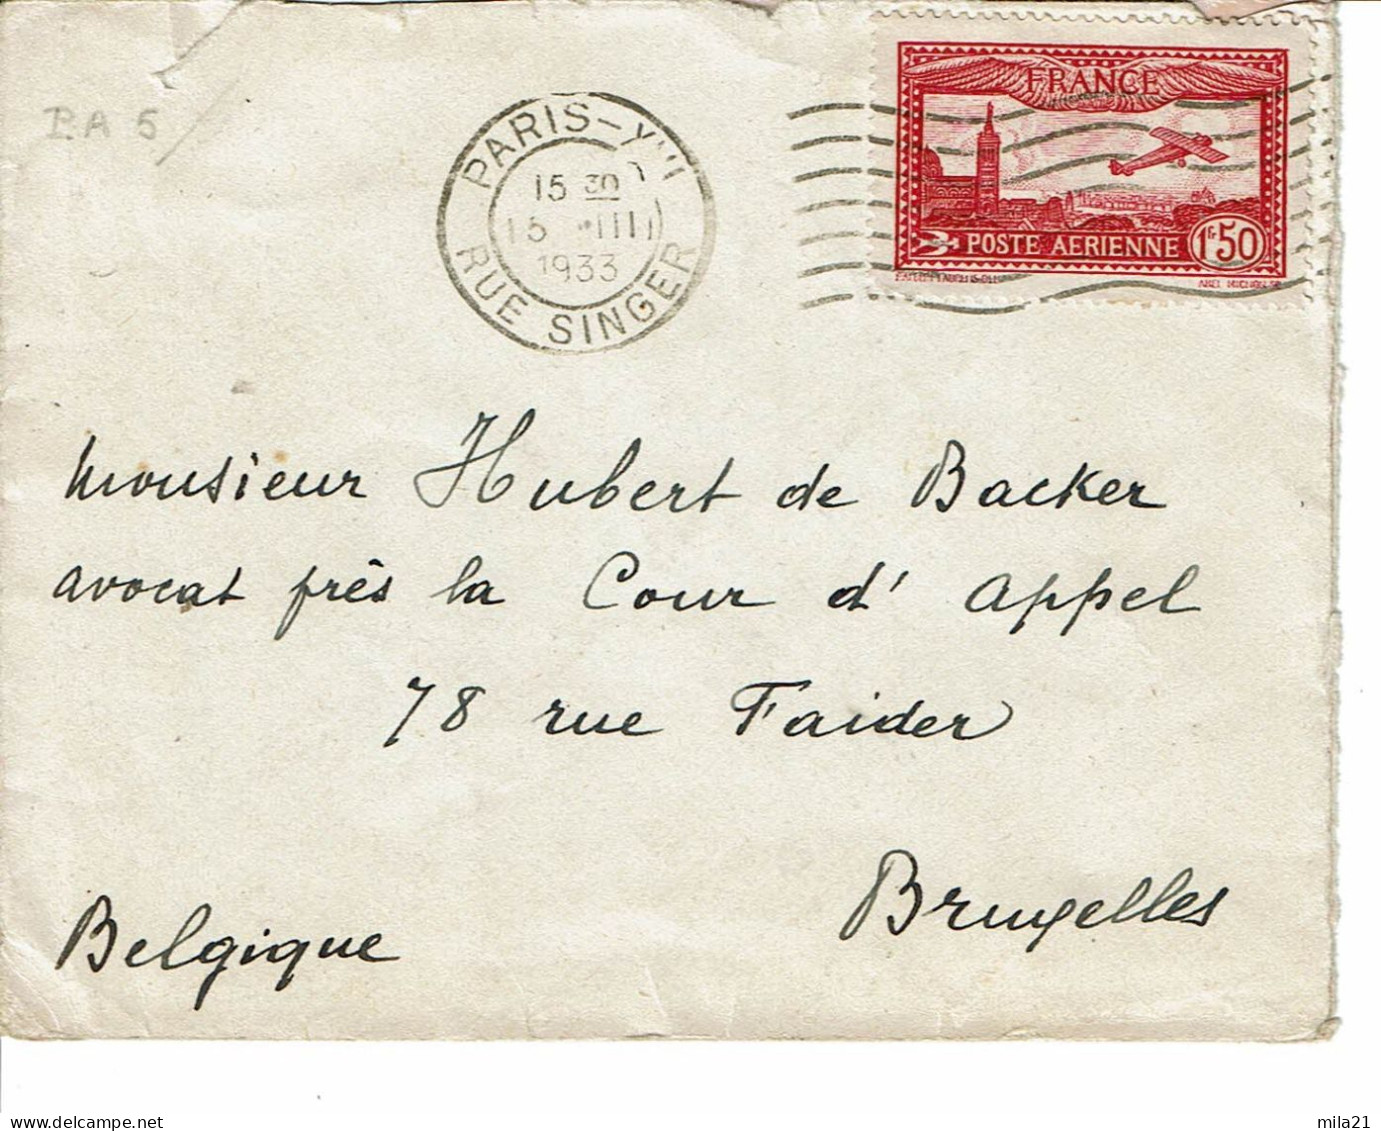 P.A 5
PARIS-XVI
15 30
15 III
1933
RUE SINGER
FRANCE
POSTE AERIENNE 1F50
Monsieur Hubert de Backer
avocat près la Cour d'appel
78 rue Faider
Bruxelles
Belgique
mila21